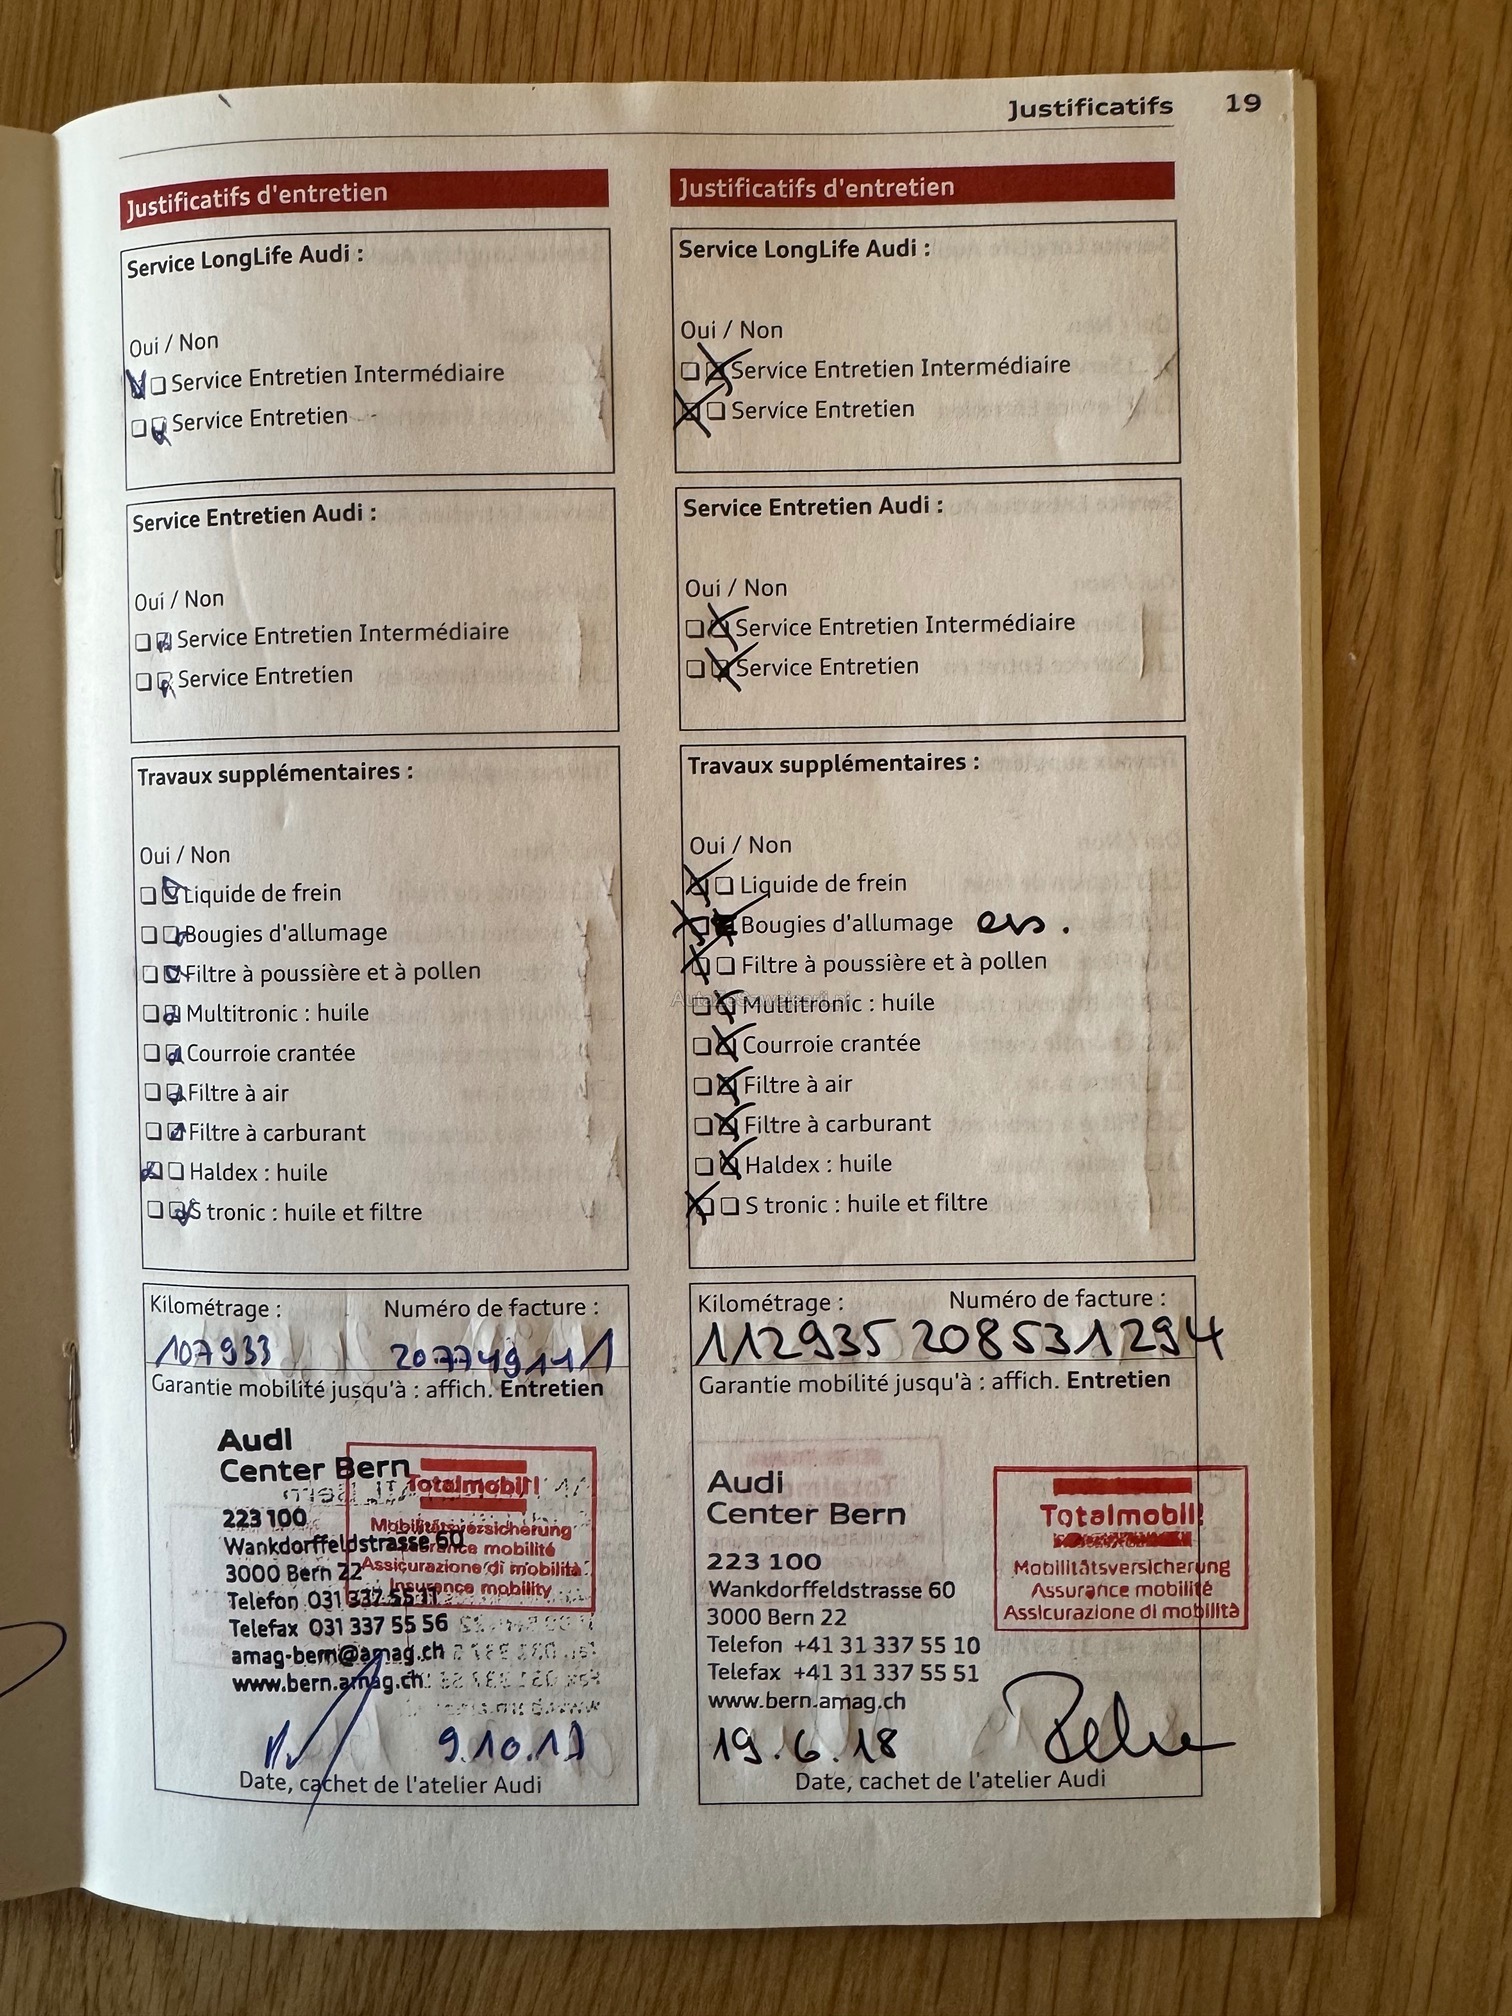 Justificatifs 19
Justificatifs d'entretien
Service LongLife Audi :
Oui / Non
Service Entretien Intermédiaire
Service Entretien
Service Entretien Audi :
Oui / Non
Service Entretien Intermédiaire
Service Entretien
Travaux supplémentaires :
Oui / Non
Liquide de frein
Bougies d'allumage
Filtre à poussière et à pollen
Multitronic : huile
Courroie crantée
Filtre à air
Filtre à carburant
Haldex : huile
S tronic : huile et filtre
Kilométrage : Numéro de facture :
107933 2077491111
Garantie mobilité jusqu'à : affich. Entretien
Audi
Center Bern
223 100
Wankdorffeldstrasse 60
3000 Bern 22
Telefon 031 337 55 11
Telefax 031 337 55 56
amag-bern@amag.ch
www.bern.amag.ch
Totalmobil!
Mobilitätsversicherung
Assurance mobilité
Assicurazione di mobilità
Insurance mobility
9.10.17
Date, cachet de l'atelier Audi
Justificatifs d'entretien
Service LongLife Audi :
Oui / Non
Service Entretien Intermédiaire
Service Entretien
Service Entretien Audi :
Oui / Non
Service Entretien Intermédiaire
Service Entretien
Travaux supplémentaires :
Oui / Non
Liquide de frein
Bougies d'allumage ers.
Filtre à poussière et à pollen
Multitronic : huile
Courroie crantée
Filtre à air
Filtre à carburant
Haldex : huile
S tronic : huile et filtre
Kilométrage : Numéro de facture :
112935 208531294
Garantie mobilité jusqu'à : affich. Entretien
Audi
Center Bern
223 100
Wankdorffeldstrasse 60
3000 Bern 22
Telefon +41 31 337 55 10
Telefax +41 31 337 55 51
www.bern.amag.ch
Totalmobil!
Mobilitätsversicherung
Assurance mobilité
Assicurazione di mobilità
19.6.18
Date, cachet de l'atelier Audi